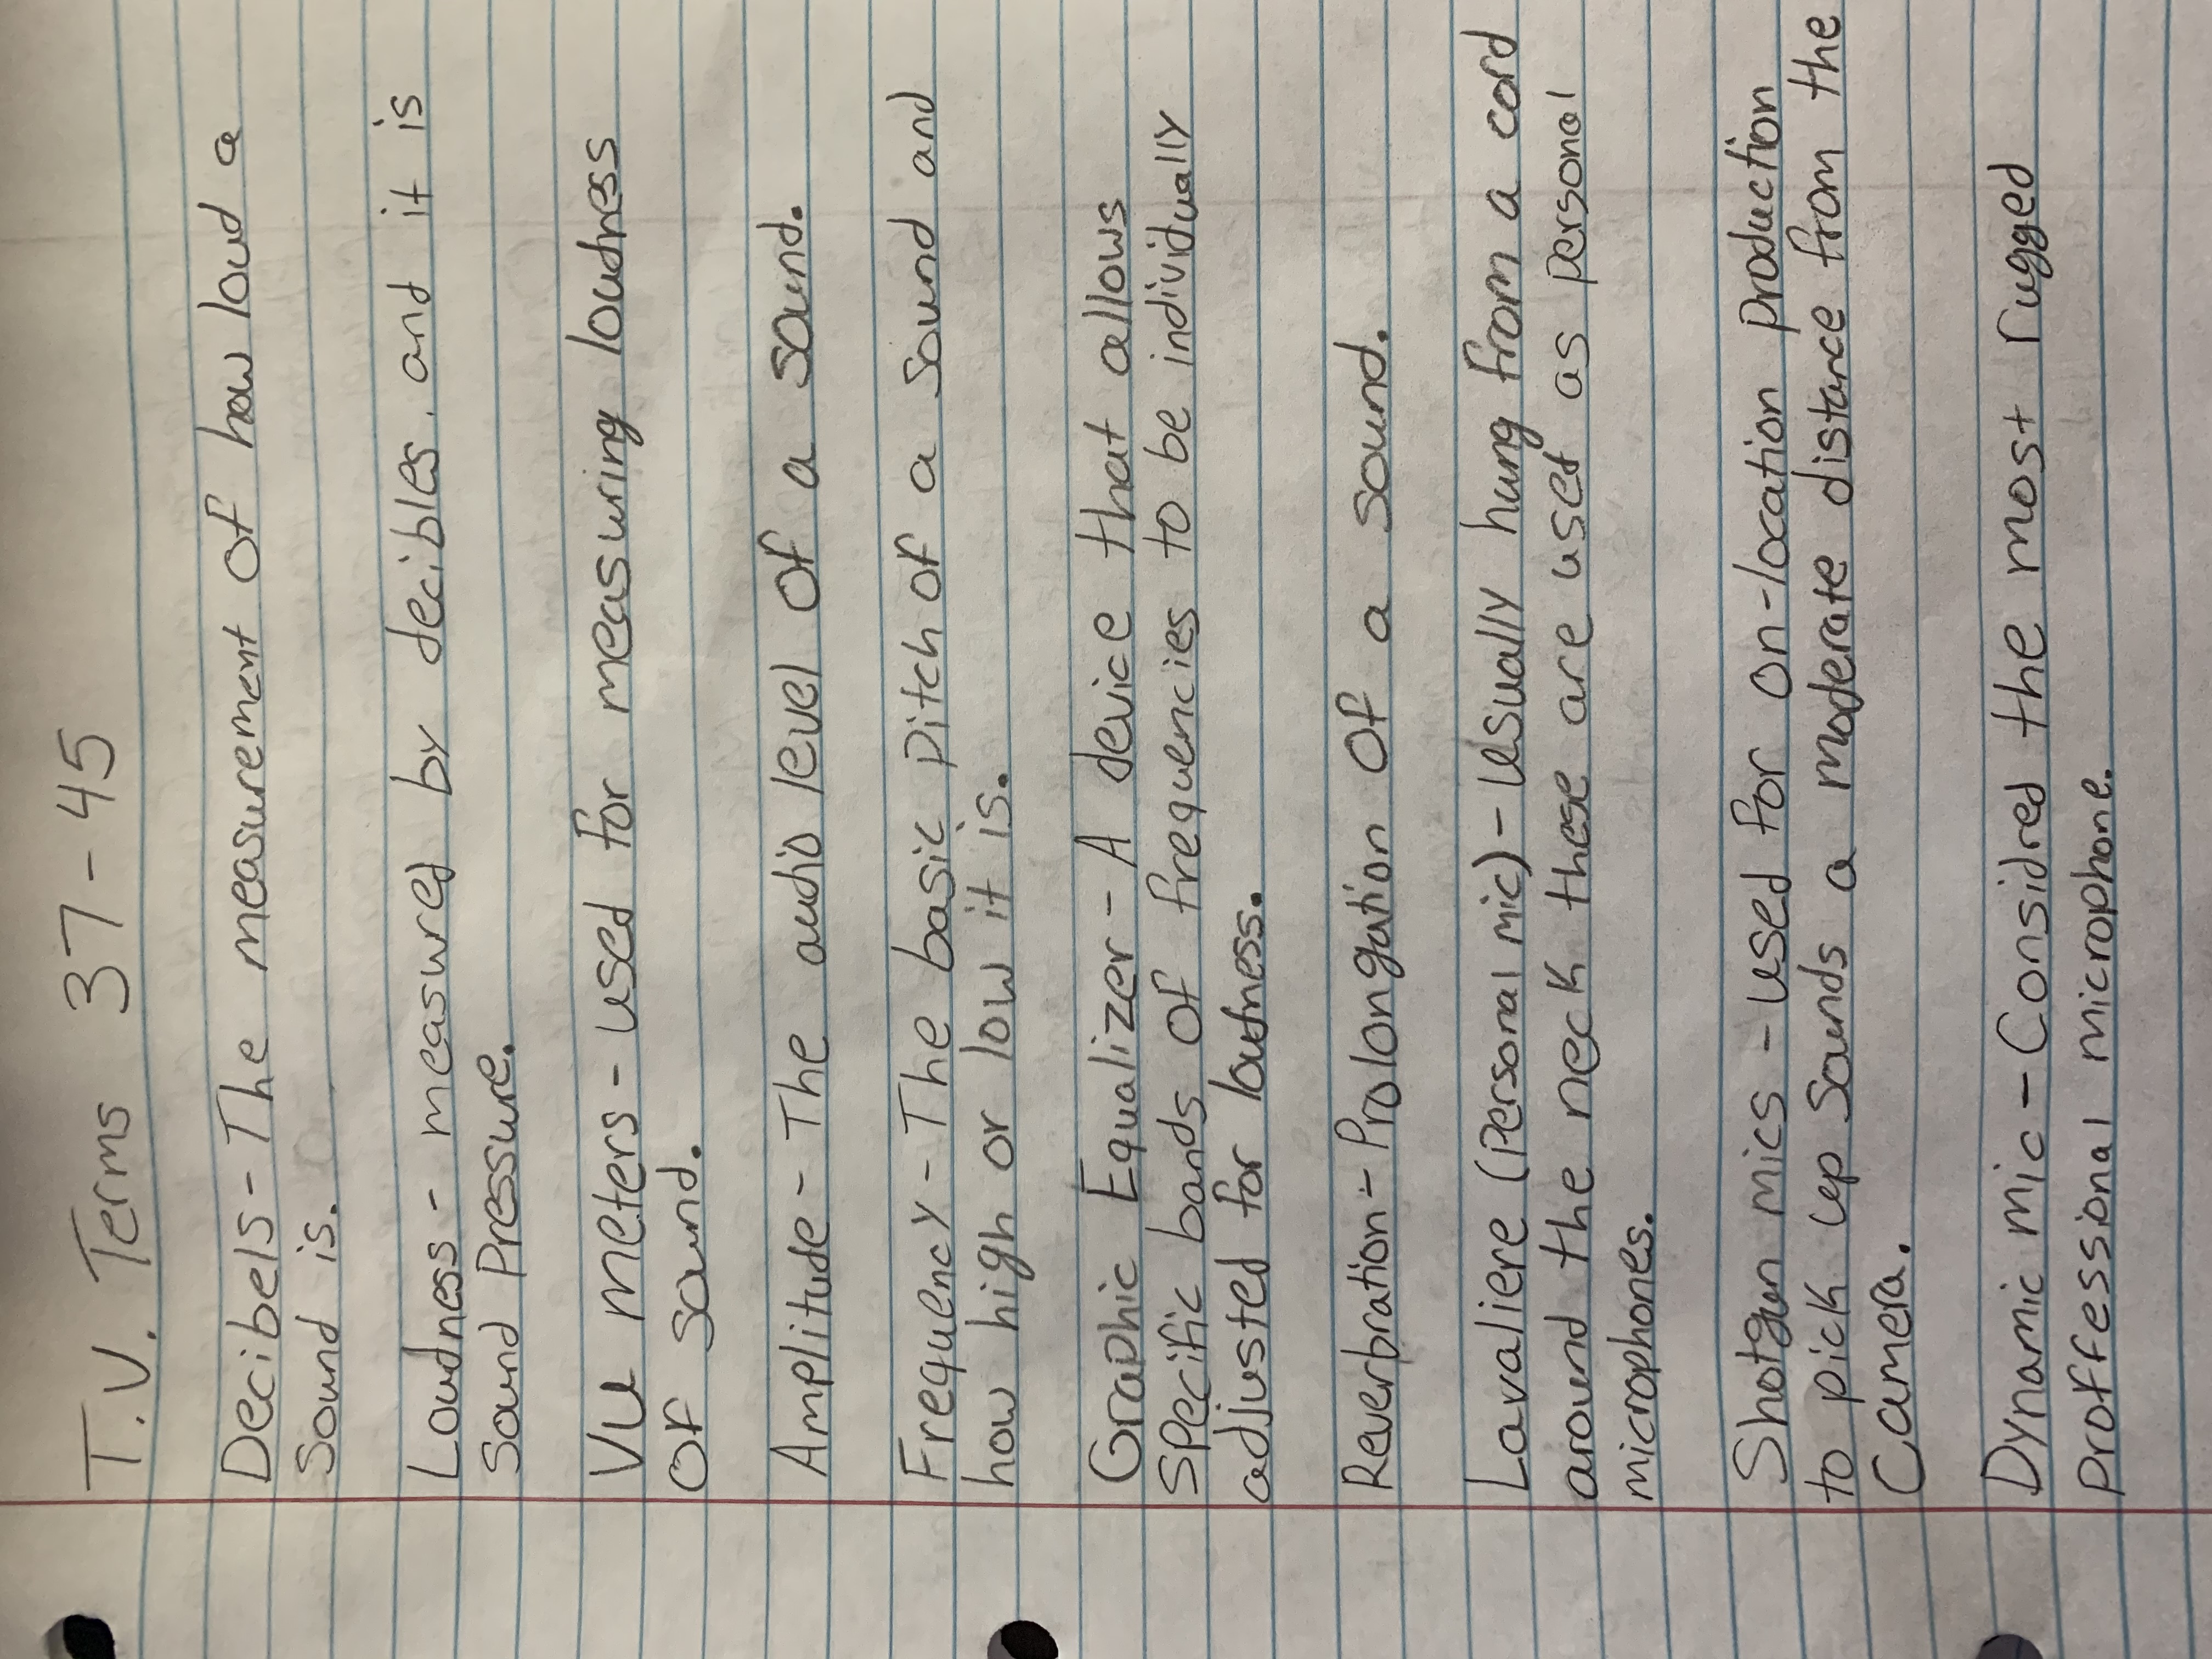 T.V. Terms 37-45
Decibels - The measurement of how loud a
Sound is.
Loudness - measured by decibles. and it is
Sound Pressure.
VU meters - used for measuring loudness
of sound.
Amplitude - The audio level of a sound.
Frequency - The basic Pitch of a sound and
how high or low it is.
Graphic Equalizer - A device that allows
Specific bands of frequencies to be individually
adjusted for loudness.
Reverbration - Prolongation of a sound.
Lavaliere (Personal mic) - Usually hung from a cord
around the neck these are used as personal
microphones.
Shotgun mics - used for on-location production
to pick up Sounds a moderate distance from the
Camera.
Dynamic mic - Considred the most rugged
proffessional microphone.